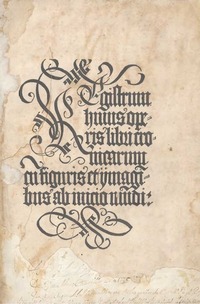 Registrum
huius ope-
ris libri cro-
nicarum
cu figuris et ymagi-
bus ab inicio mudi: